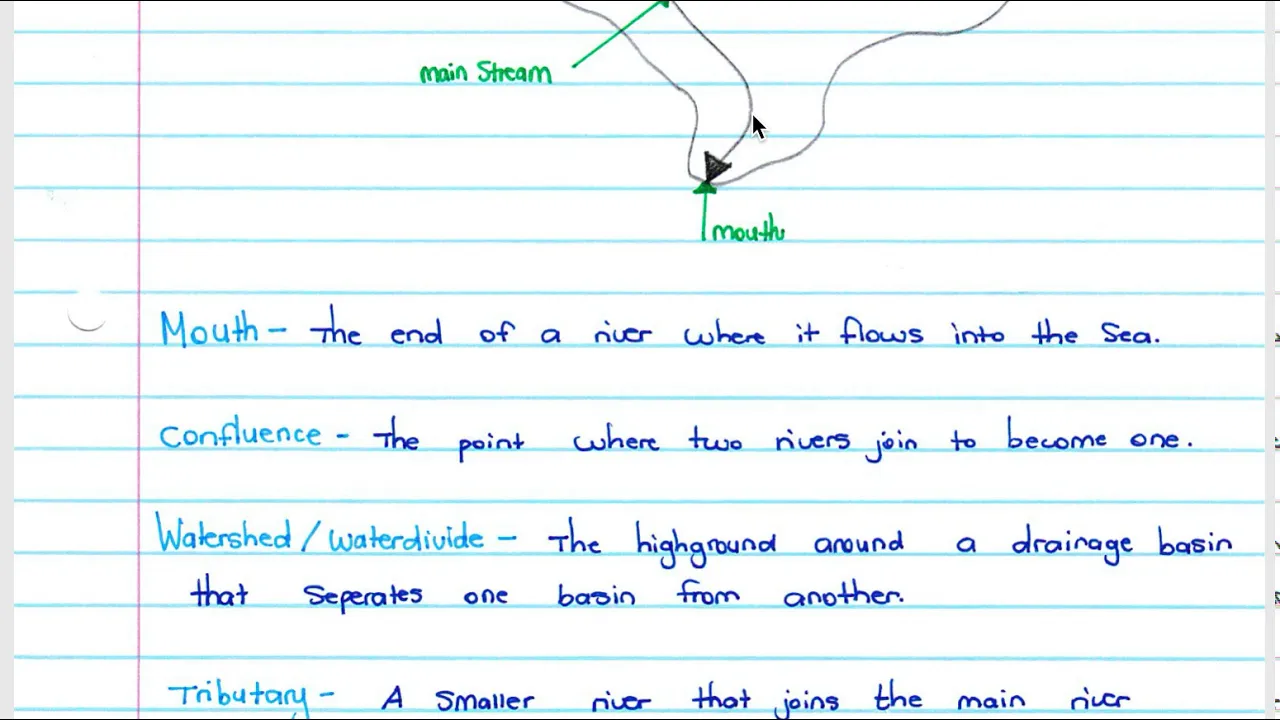 main Stream
mouth
Mouth - The end of a river where it flows into the Sea.
Confluence - The point where two rivers join to become one.
Watershed / waterdivide - The highground around a drainage basin
that Seperates one basin from another.
Tributary - A smaller river that joins the main river